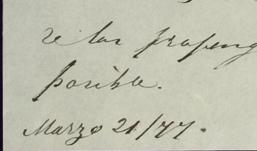 de las
posible.
Marzo 21/77.